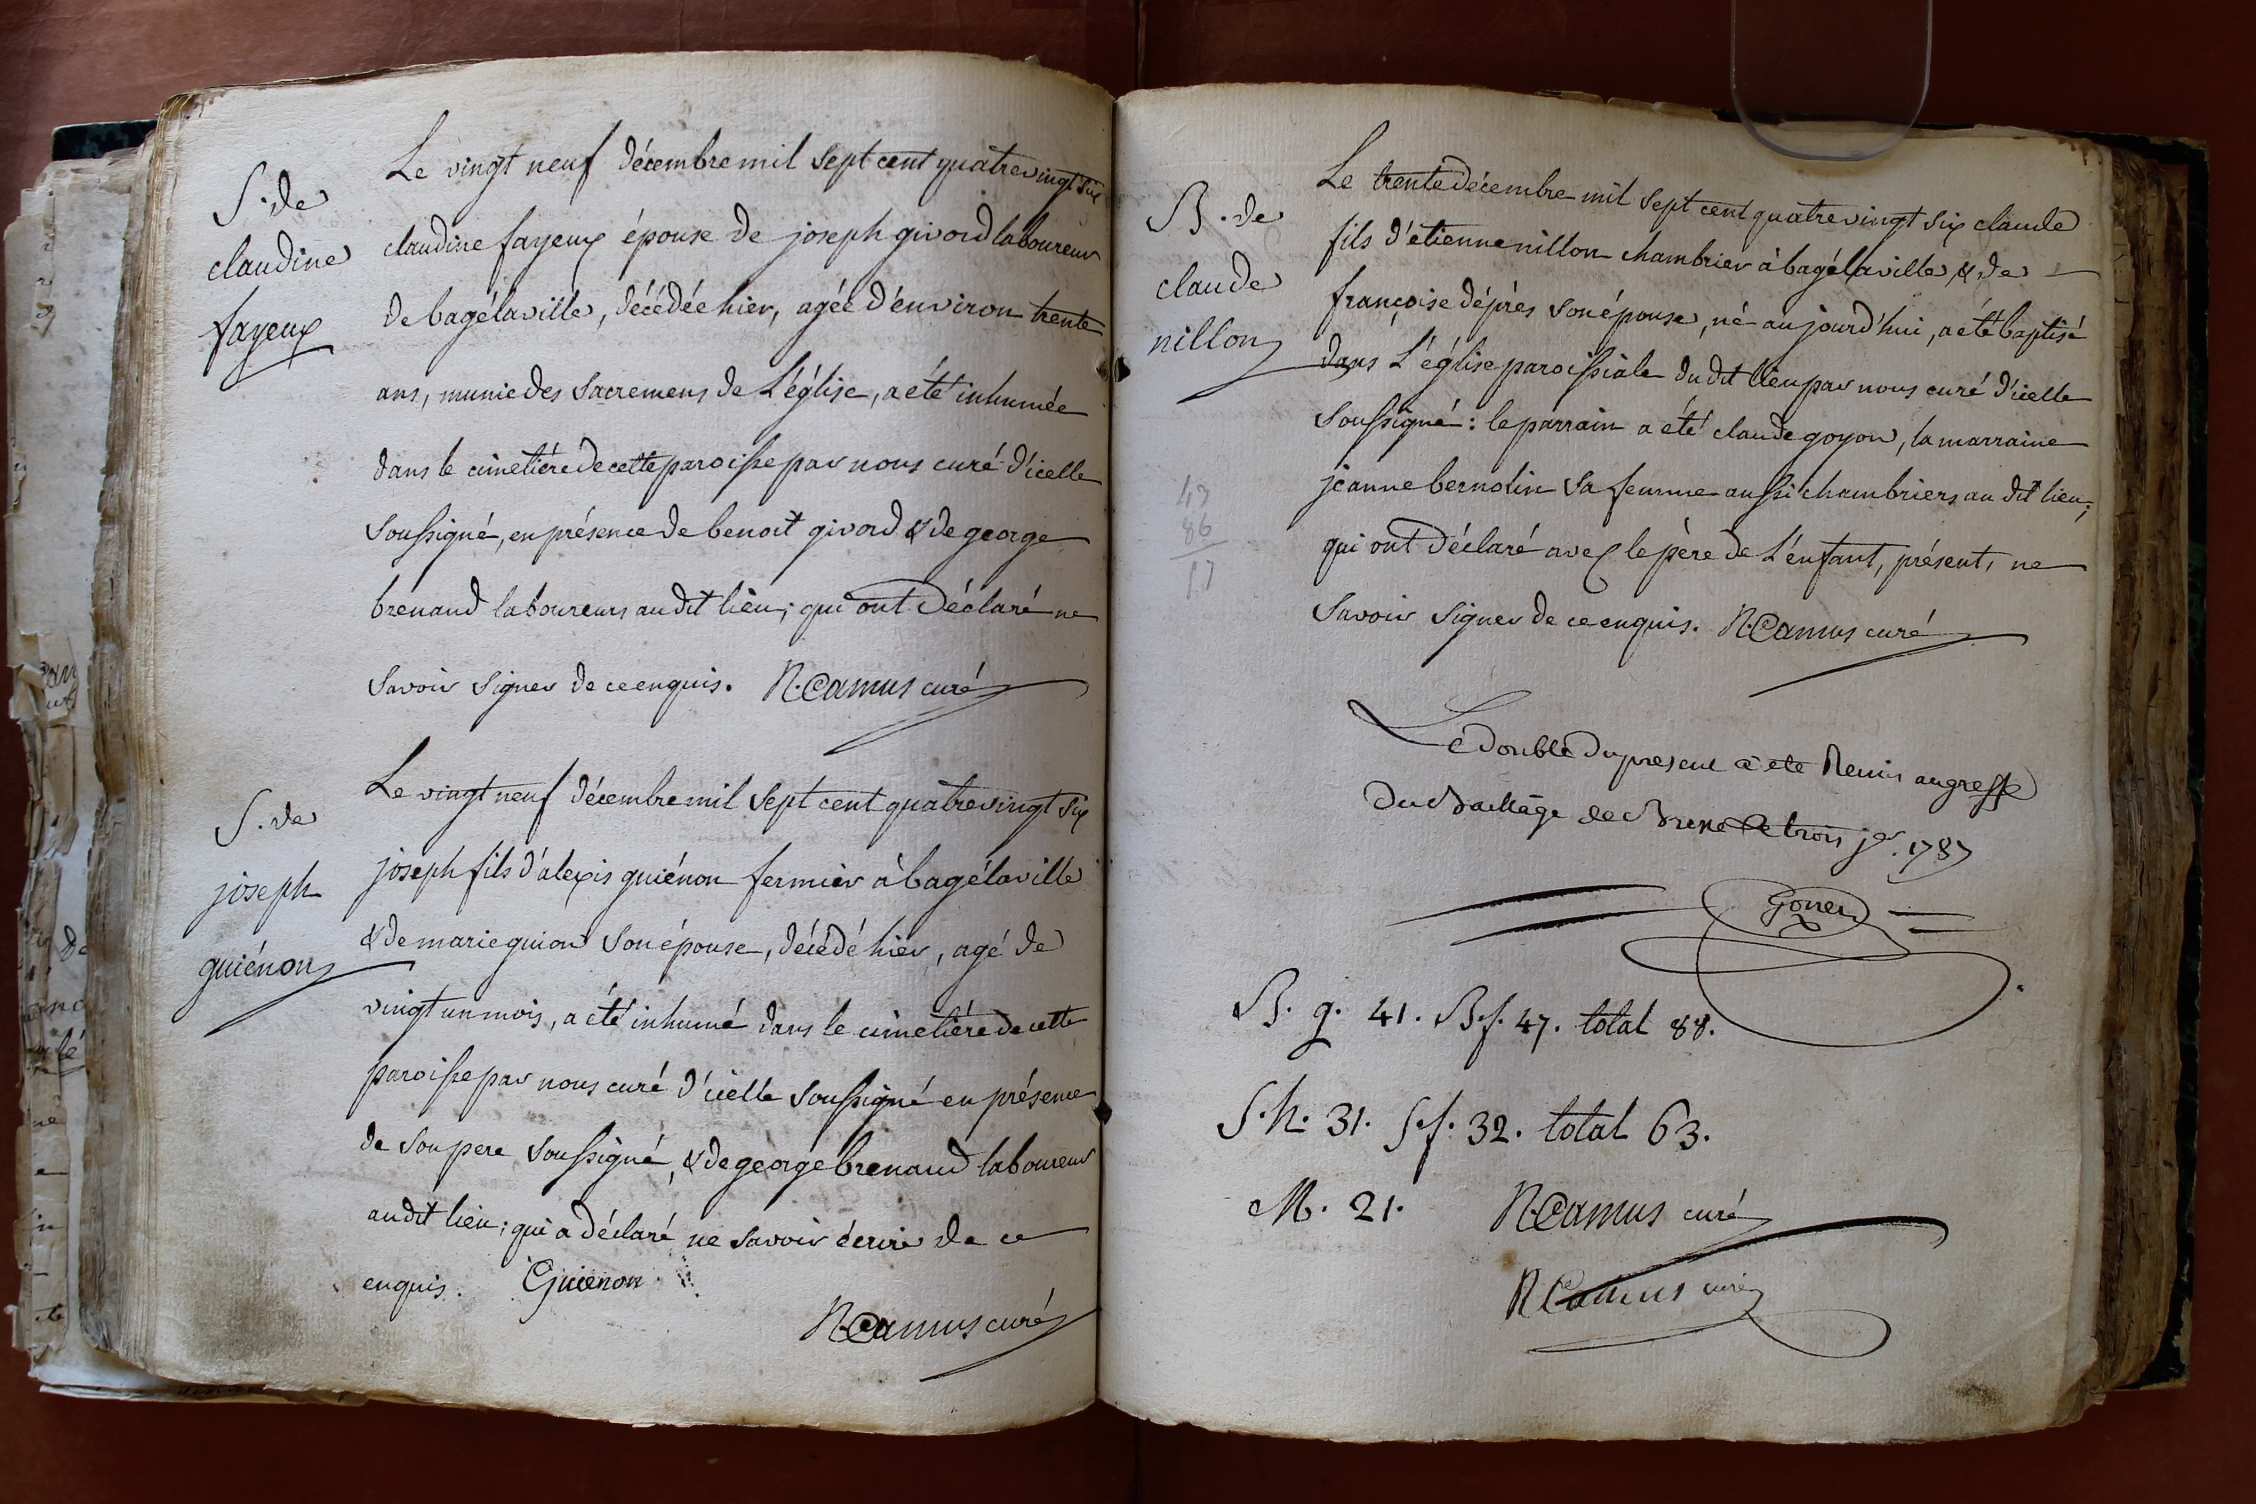 S. de
claudine
fayeux
Le vingt neuf décembre mil sept cent quatrevingt six
claudine fayeux épouse de joseph givord laboureur
de bagélaville, décédée hier, agée d'environ trente
ans, munie des sacremens de L'église, a été inhumée
dans le cimetiére de cette paroisse par nous curé d'icelle
soussigné, en présence de benoit givord & de george
brenaud laboureurs au dit lieu; qui ont déclaré ne
savoir signer de ce enquis. N. Camus curé
S. de
joseph
guiénon
Le vingt neuf décembre mil sept cent quatrevingt six
joseph fils d'alexis guiénon fermier à bagélaville
& de marie guion son épouse, décédé hier, agé de
vingt un mois, a été inhumé dans le cimetiére de cette
paroisse par nous curé d'icelle soussigné en présence
de son pere soussigné, & de george brenaud laboureur
au dit lieu; qui a déclaré ne savoir écrire de ce
enquis. Guienon
N. Camus curé
B. de
claude
nillon
Le trente décembre mil sept cent quatrevingt six claude
fils d'etienne nillon chambrier à bagélaville & de
françoise déprès son épouse, né aujourd'hui, a été baptisé
dans L'église paroissiale du dit lieu par nous curé d'icelle
soussigné: le parrain a été claude goyon, la marraine
jeanne bernolin sa femme aussi chambriers au dit lieu;
qui ont déclaré avec le père de L'enfant, présent, ne
savoir signer de ce enquis. N. Camus curé
47
86
Le double du present a ete Remis au greffe
Du Bailliage de Bresse le trois jer. 1787
B. g. 41. B. f. 47. total 88.
S. h. 31. S. f. 32. total 63.
M. 21. N. Camus curé
N Camus curé